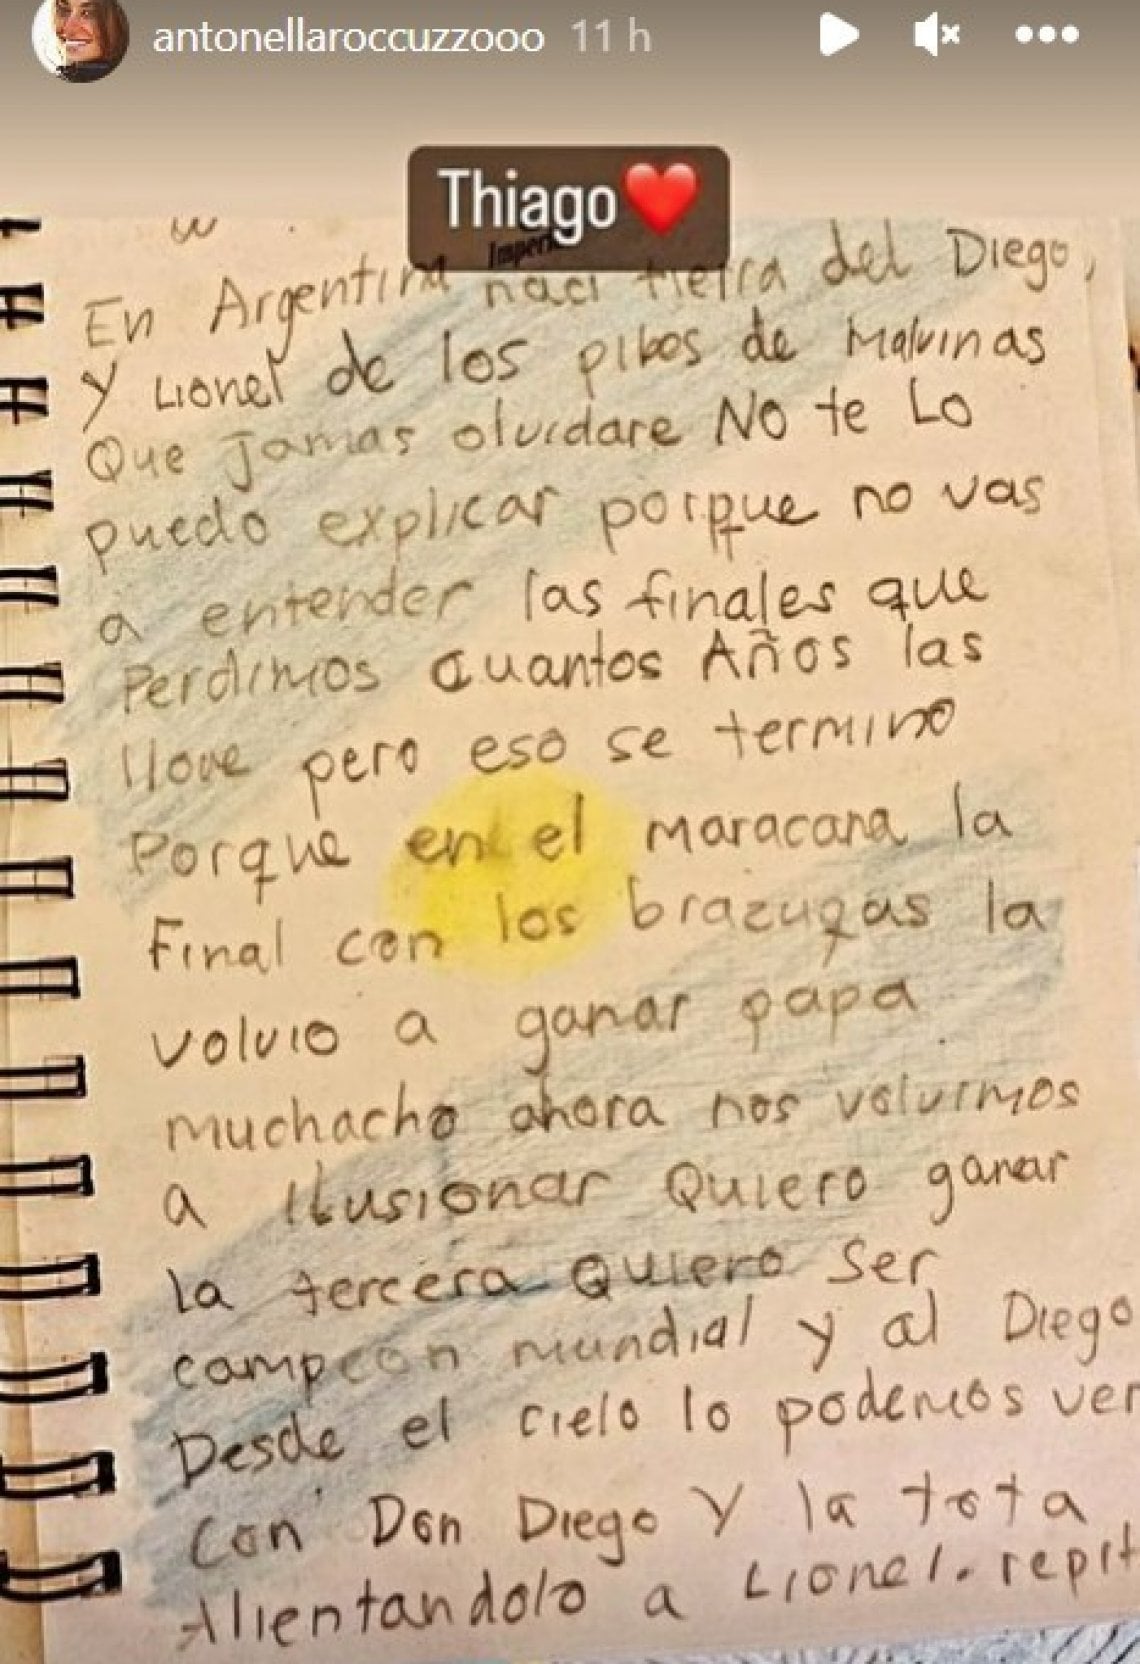 antonellaroccuzzooo 11 h
Thiago❤
En Argentina naci tierra del Diego,
y Lionel de los pibes de Malvinas
Que jamas olvidare NO te Lo
puedo explicar porque no vas
a entender las finales que
Perdimos Cuantos Años las
llore pero eso se termino
Porque en el maracana la
Final con los brazugas la
volvio a ganar papa
muchacho ahora nos volvimos
a ilusionar Quiero ganar
la tercera Quiero ser
campeon mundial y al Diego
Desde el cielo lo podemos ver
Con Don Diego Y la tota
Alientandolo a Lionel. repit